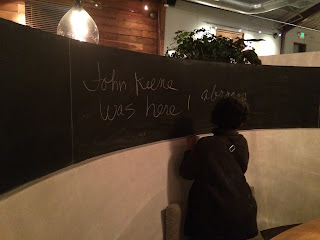 John Keene
was here!